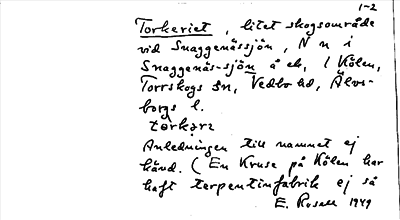 1-2
Torkeriet, litet skogsområde
vid Snaggenässjön, N n i
Snaggenäs-sjön å ek, / Kölen,
Torrskogs sn, Vedbo hd, Älvs-
borgs l.
Anledningen till namnet ej
känd. (En Kruse på Kölen har
haft terpentinfabrik ej så
E. Rosell 1949